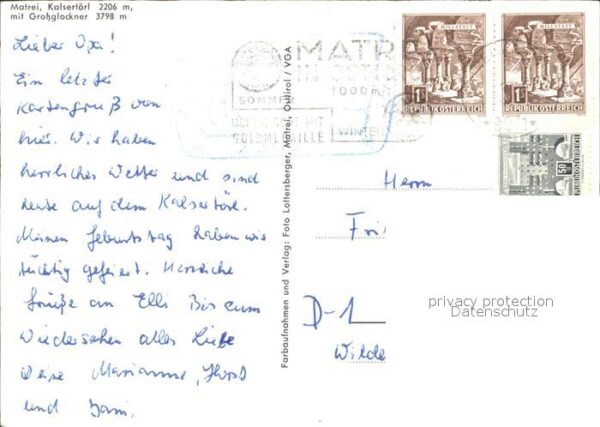 Matrei, Kalsertörl 2206 m,
mit Großglockner 3798 m
Lieber Opa!
Ein letzter
Kartengruß von
hier. Wir haben
herrliches Wetter und sind
heute auf dem Kalsertörl.
Meinen Geburtstag haben wir
tüchtig gefeiert. Herzliche
Grüße an Elli Bis zum
Wiedersehen alles Liebe
Deine Marianne, Horst
und
Farbaufnahmen und Verlag: Foto Lottersberger, Matrei, Osttirol / VGA
MATR
1000m
SOMMER
WINTER
MILLSTATT
1S
REPUBLIK ÖSTERREICH
MILLSTATT
1S
REPUBLIK ÖSTERREICH
50
Herrn
Fri
D-1
Wilde
privacy protection
Datenschutz